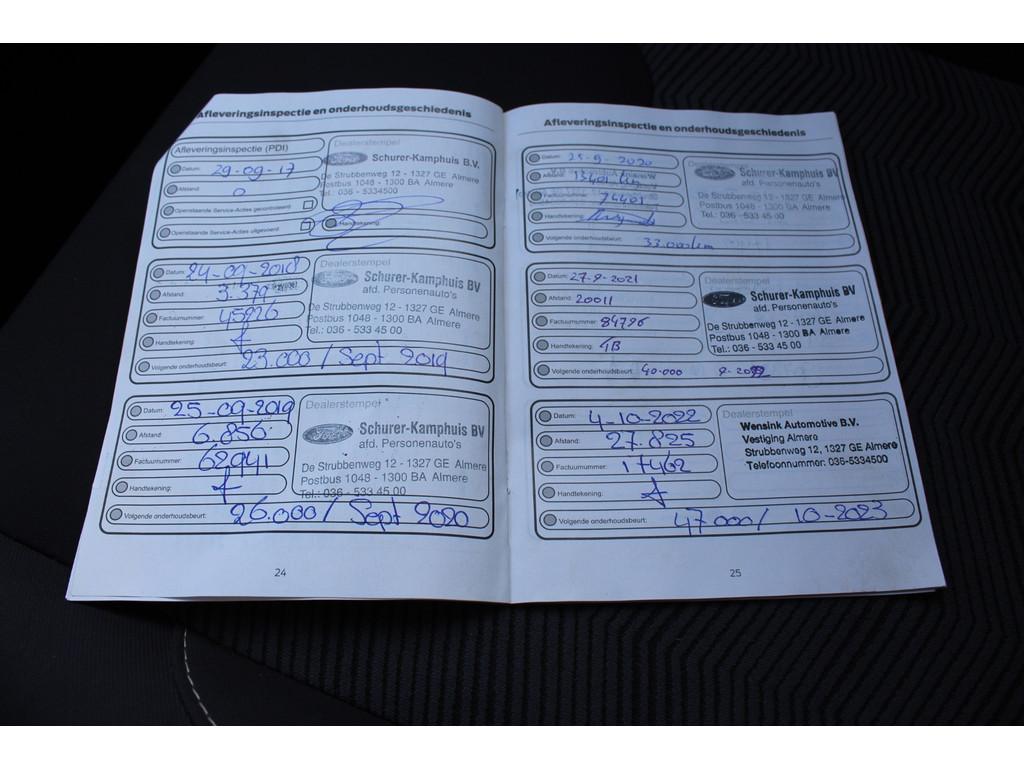 Afleveringsinspectie en onderhoudsgeschiedenis
Afleveringsinspectie (PDI)
Datum: 29-09-17
Afstand: 0
Openstaande Service-Acties gecontroleerd
Openstaande Service-Acties uitgevoerd
Dealerstempel
Ford Schurer-Kamphuis B.V.
De Strubbenweg 12 - 1327 GE Almere
Postbus 1048 - 1300 BA Almere
Tel.: 036 - 5334500
Handtekening:
Datum: 24-09-2018
Afstand: 3.379
Factuurnummer: 45926
Handtekening:
Volgende onderhoudsbeurt: 23.000 / Sept 2019
Dealerstempel
Ford Schurer-Kamphuis BV
afd. Personenauto's
De Strubbenweg 12 - 1327 GE Almere
Postbus 1048 - 1300 BA Almere
Tel.: 036 - 533 45 00
Datum: 25-09-2019
Afstand: 6.856
Factuurnummer: 62941
Handtekening:
Volgende onderhoudsbeurt: 26.000 / Sept 2020
Dealerstempel
Ford Schurer-Kamphuis BV
afd. Personenauto's
De Strubbenweg 12 - 1327 GE Almere
Postbus 1048 - 1300 BA Almere
Tel.: 036 - 533 45 00
24
Afleveringsinspectie en onderhoudsgeschiedenis
Datum: 25-9-2020
Afstand: 13401 km
74401
Handtekening:
Volgende onderhoudsbeurt: 33.000km
Dealerstempel
Ford Schurer-Kamphuis BV
afd. Personenauto's
De Strubbenweg 12 - 1327 GE Almere
Postbus 1048 - 1300 BA Almere
Tel.: 036 - 533 45 00
Datum: 27-9-2021
Afstand: 20011
Factuurnummer: 84796
Handtekening: GB
Volgende onderhoudsbeurt: 40.000 9-2022
Dealerstempel
Ford Schurer-Kamphuis BV
afd. Personenauto's
De Strubbenweg 12 - 1327 GE Almere
Postbus 1048 - 1300 BA Almere
Tel.: 036 - 533 45 00
Datum: 4-10-2022
Afstand: 27.825
Factuurnummer: 17462
Handtekening:
Volgende onderhoudsbeurt: 47.000 / 10-2023
Dealerstempel
Wensink Automotive B.V.
Vestiging Almere
Strubbenweg 12, 1327 GE Almere
Telefoonnummer: 036-5334500
25